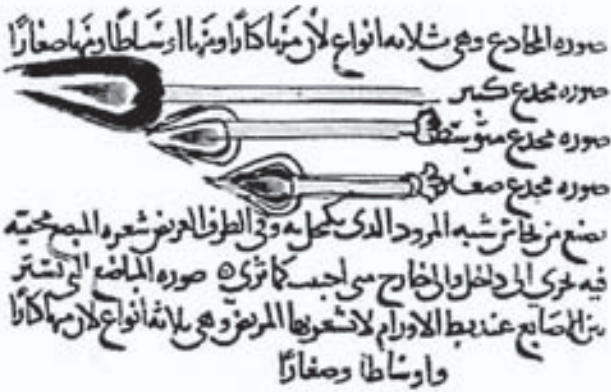 صوره المخادع وهى ثلاثه انواع لان منها كبارا ومنها اوساطا ومنها صغارا
صوره مخدع كبير
صوره مخدع متوسط
صوره مخدع صغير
تصنع من نحاس شبه المرود الذى يكحل به وفى الطرف العريض شفره المبضع مخفيه
فيه تجرى الى داخل والى خارج متى احببت كما ترى ٥ صوره المباضع التى تستتر
بين الاصابع عند بط الاورام لا يشعر بها المريض وهى ثلاثه انواع لان منها كبارا
واوساطا وصغارا